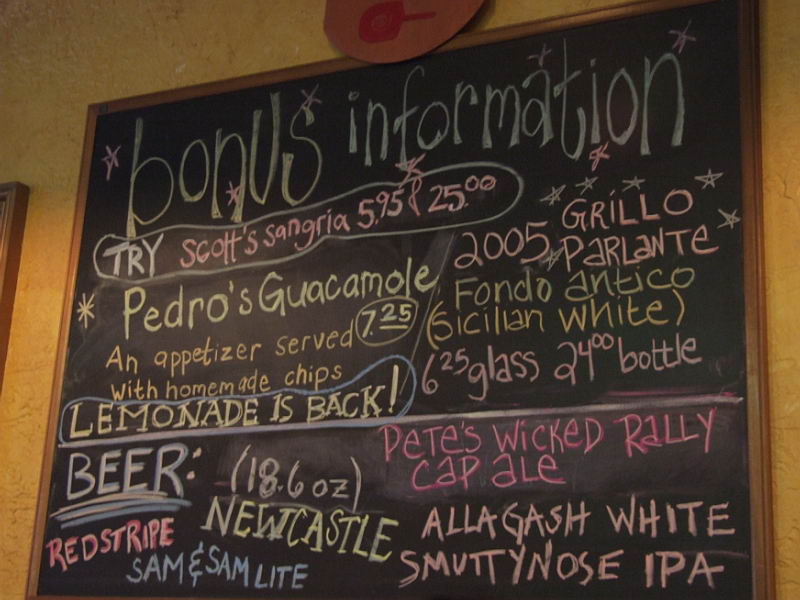 bonus information
TRY Scott's sangria 5.95 & 25.00
Pedro's Guacamole
7.25
An appetizer served
with homemade chips
LEMONADE IS BACK!
2005 GRILLO
PARLANTE
Fondo antico
(Sicilian white)
6 25 glass 24 00 bottle
BEER: (18.6 oz)
REDSTRIPE
NEWCASTLE
SAM & SAM LITE
PETE'S WICKED RALLY
CAP ALE
ALLAGASH WHITE
SMUTTYNOSE IPA